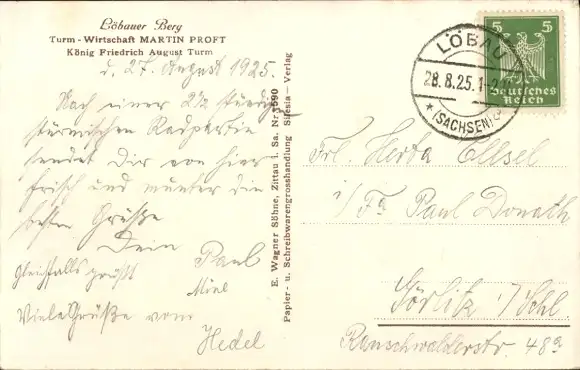 Löbauer Berg
Turm - Wirtschaft MARTIN PROFT
König Friedrich August Turm
d. 27. August 1925.
Nach einer 2½ stündigen
stürmischen Radpartie
sendet Dir von hier
frisch und munter die
besten Grüße
Dein Paul
Gleichfalls grüßt
Viele Grüße vom
Hedel
E. Wagner Söhne, Zittau i. Sa. Nr. 1590
Papier- u. Schreibwarengrosshandlung Silesia - Verlag
LÖBAU
28.8.25.
(SACHSEN)
5 5
Deutsches
Reich
Frl. Herta
i/Fa Paul Donath
Görlitz i/Schl.
Rauschwalderstr. 48a